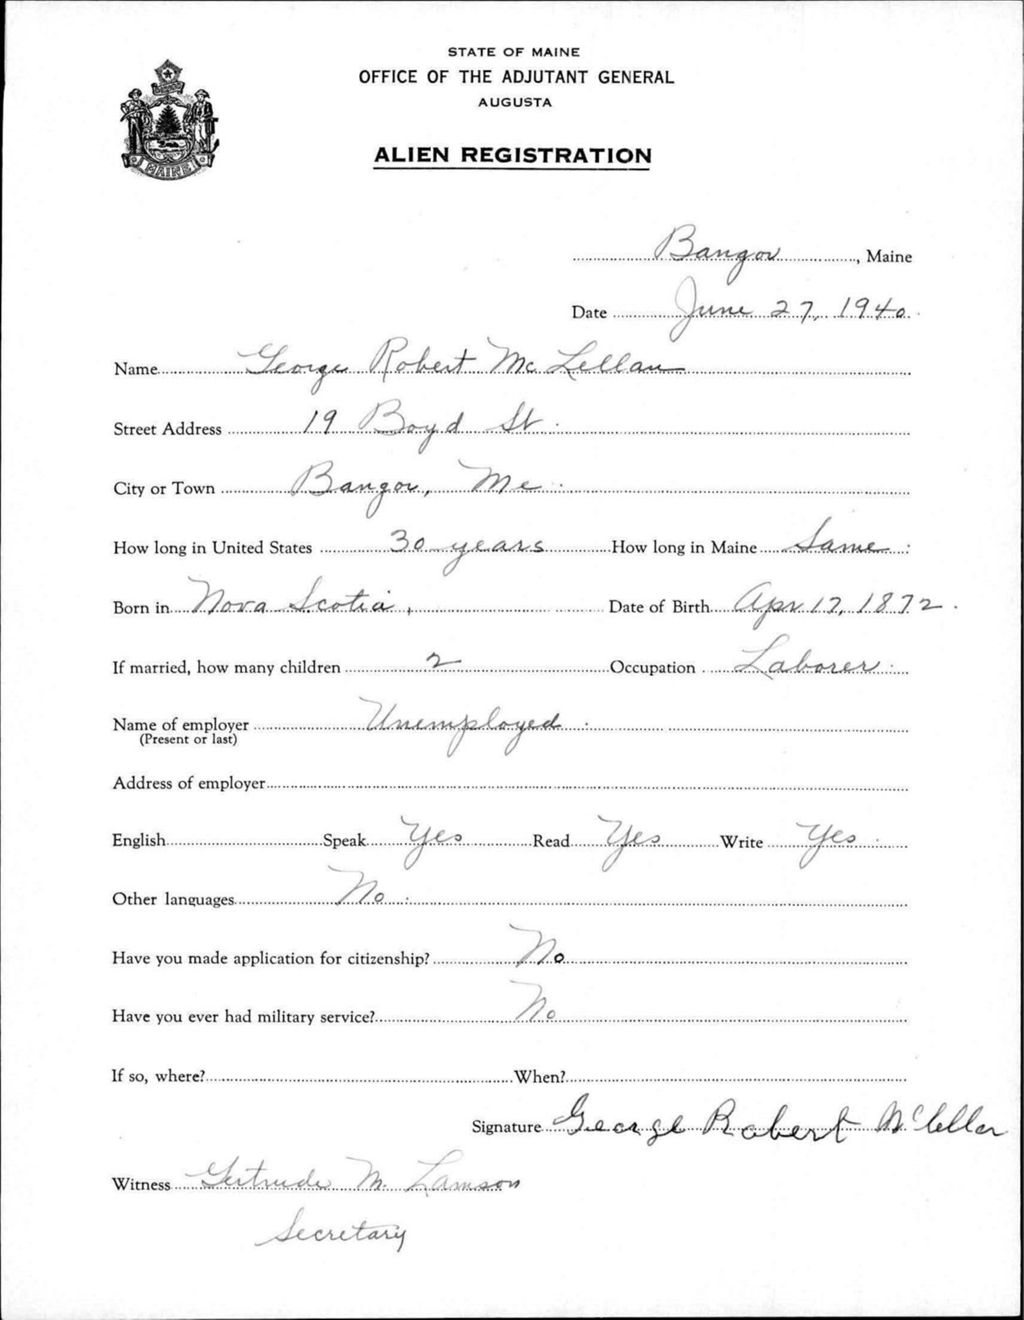 STATE OF MAINE
OFFICE OF THE ADJUTANT GENERAL
AUGUSTA
ALIEN REGISTRATION
MAINE
Bangor, Maine
Date June 27, 1940
Name George Robert McLellan
Street Address 19 Boyd St.
City or Town Bangor, Me.
How long in United States 30 years How long in Maine Same
Born in Nova Scotia, Date of Birth Apr 17, 1872.
If married, how many children 2 Occupation Laborer
Name of employer Unemployed
(Present or last)
Address of employer
English Speak Yes Read Yes Write Yes
Other languages No
Have you made application for citizenship? No
Have you ever had military service? No
If so, where? When?
Signature George Robert McLellan
Witness Gertrude M. Lamson
Secretary